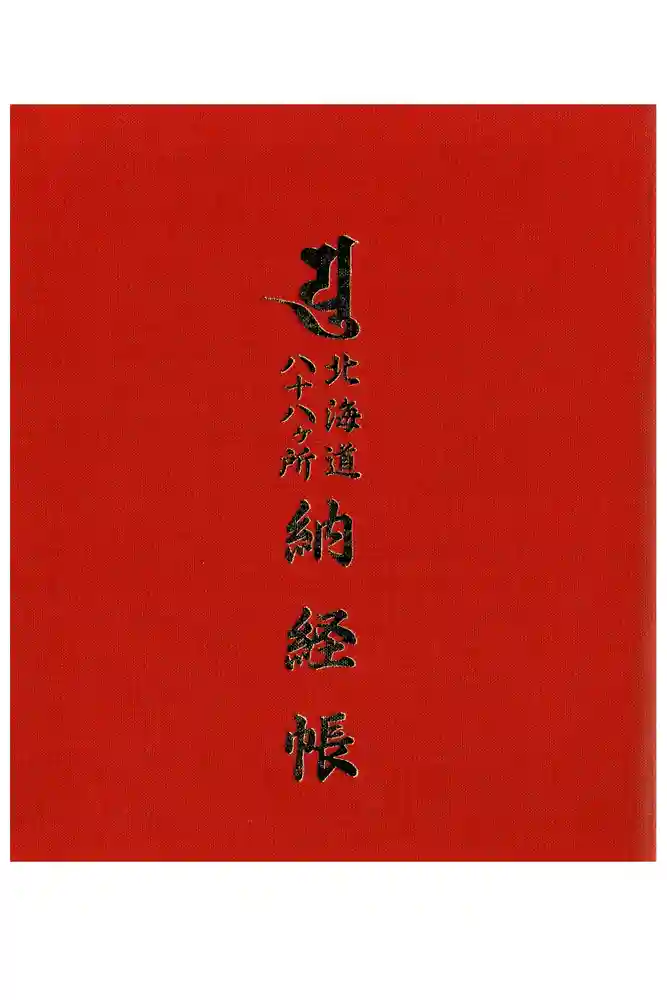 北海道
八十八ヶ所
納経帳